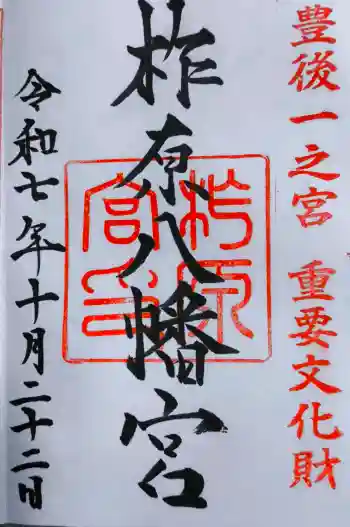 豊後一之宮 重要文化財
柞原八幡宮
柞原宮印
令和七年十月二十二日